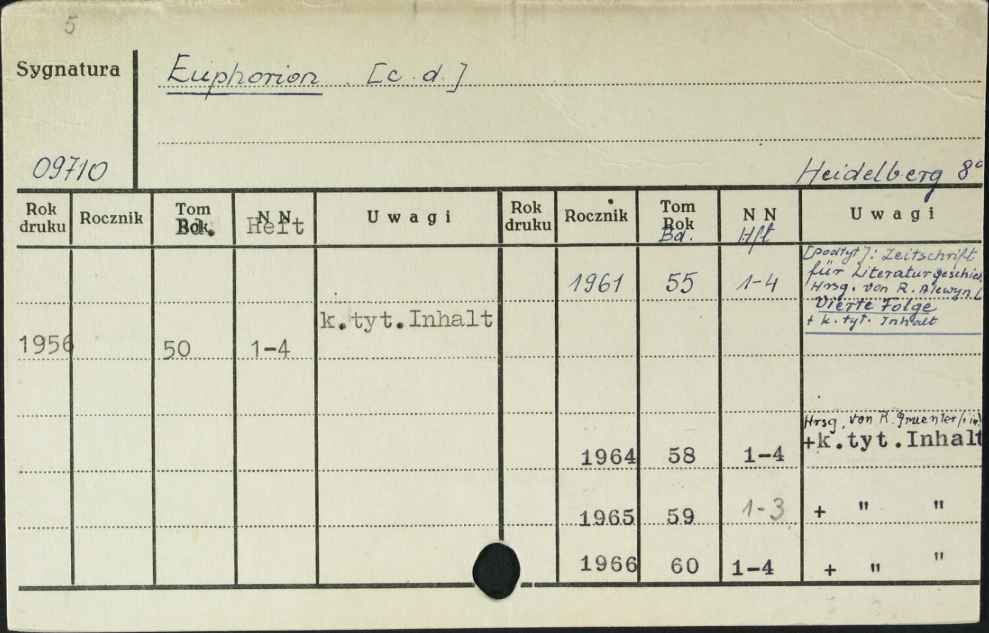 5
Sygnatura
Euphorion [c. d.]
09710
Heidelberg 8°
Rok druku Rocznik Tom Rok Bd. N N Heft Uwagi Rok druku Rocznik Tom Rok Bd. N N Hft Uwagi
[podtyt]: Zeitschrift
für Literaturgeschich
1961 55 1-4 Hrsg. von R. Alewyn
Vierte Folge
+ k. tyt. Inhalt
k.tyt.Inhalt
1956 50 1-4
Hrsg. von R. Gruenter
1964 58 1-4 +k.tyt.Inhalt
1965 59 1-3 + " "
1966 60 1-4 + " "